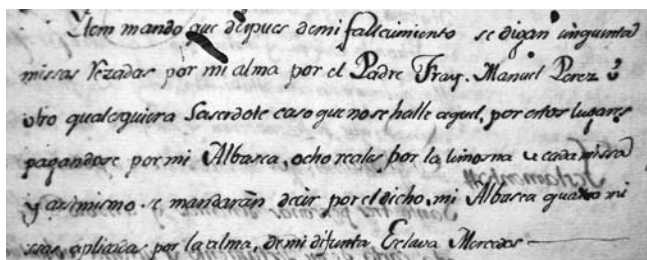 Ytem mando que despues de mi fallecimiento se digan cinquenta
missas rezadas por mi alma por el Padre Fray. Manuel Perez ù
otro qualesquiera Saserdote caso que no se halle aquel, por estos lugares
pagandose por mi Albasea, ocho reales por la limosna de cada missa
y asimismo se mandaràn decir por el dicho, mi Albasea quatro mi
ssas aplicadas por la alma, de mi difunta Esclava Mercedes